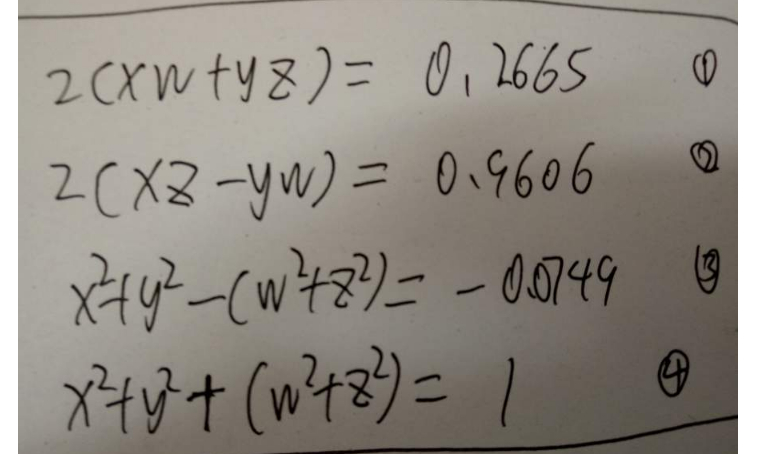 2(xw+yz)= 0.2665 ①
2(xz-yw)= 0.9606 ②
x²+y²-(w²+z²)= -0.0749 ③
x²+y²+(w²+z²)= 1 ④